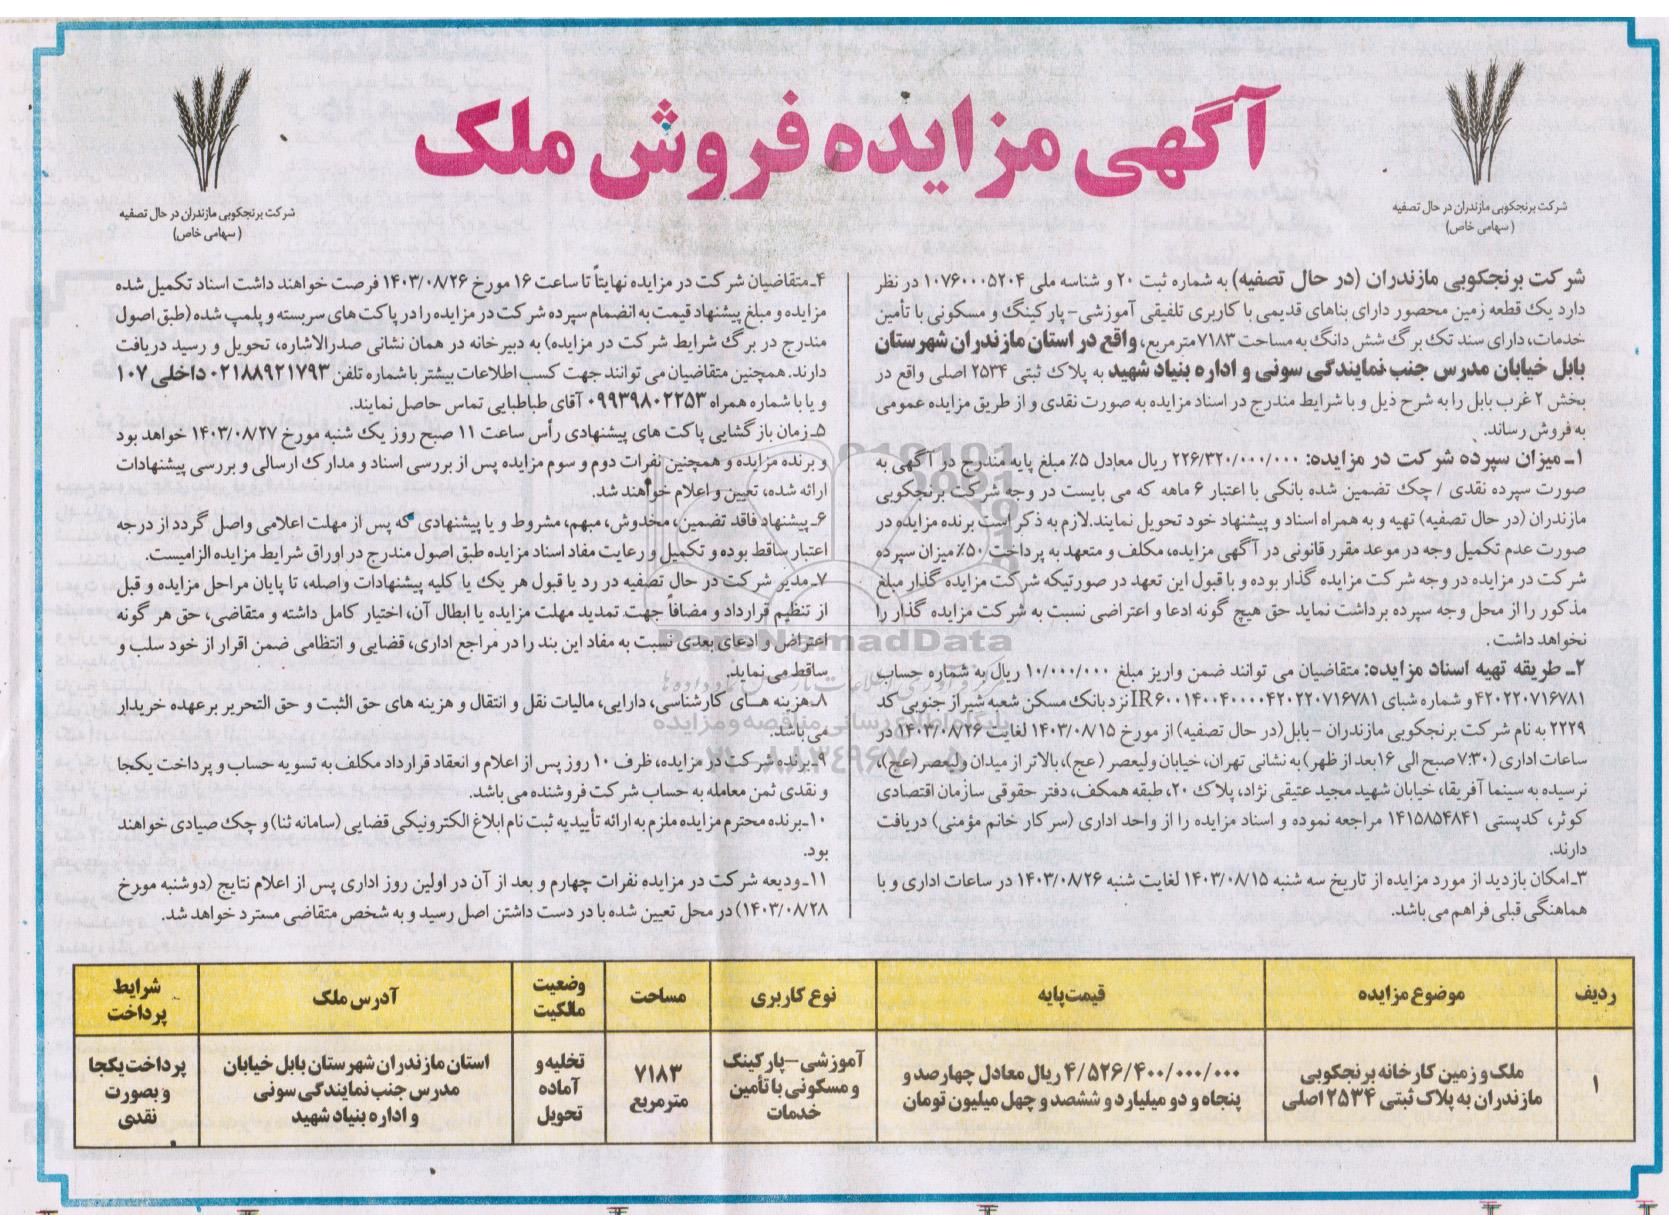 آگهی مزایده فروش ملک
شرکت برنجکوبی مازندران در حال تصفیه
(سهامی خاص)
شرکت برنجکوبی مازندران در حال تصفیه
(سهامی خاص)
شرکت برنجکوبی مازندران (در حال تصفیه) به شماره ثبت ۲۰ و شناسه ملی ۱۰۷۶۰۰۰۵۲۰۴ در نظر
دارد یک قطعه زمین محصور دارای بناهای قدیمی با کاربری تلفیقی آموزشی-پارکینگ و مسکونی با تأمین
خدمات، دارای سند تک برگ شش دانگ به مساحت ۷۱۸۳ مترمربع، واقع در استان مازندران شهرستان
بابل خیابان مدرس جنب نمایندگی سونی و اداره بنیاد شهید به پلاک ثبتی ۲۵۳۴ اصلی واقع در
بخش ۲ غرب بابل را به شرح ذیل و با شرایط مندرج در اسناد مزایده به صورت نقدی و از طریق مزایده عمومی
به فروش رساند.
۱ـ میزان سپرده شرکت در مزایده: ۲۲۶/۳۲۰/۰۰۰/۰۰۰ ریال معادل ۵٪ مبلغ پایه مندرج در آگهی به
صورت سپرده نقدی / چک تضمین شده بانکی با اعتبار ۶ ماهه که می بایست در وجه شرکت برنجکوبی
مازندران (در حال تصفیه) تهیه و به همراه اسناد و پیشنهاد خود تحویل نمایند.لازم به ذکر است برنده مزایده در
صورت عدم تکمیل وجه در موعد مقرر قانونی در آگهی مزایده، مکلف و متعهد به پرداخت ۵۰٪ میزان سپرده
شرکت در مزایده در وجه شرکت مزایده گذار بوده و با قبول این تعهد در صورتیکه شرکت مزایده گذار مبلغ
مذکور را از محل وجه سپرده برداشت نماید حق هیچ گونه ادعا و اعتراضی نسبت به شرکت مزایده گذار را
نخواهد داشت.
۲ـ طریقه تهیه اسناد مزایده: متقاضیان می توانند ضمن واریز مبلغ ۱۰/۰۰۰/۰۰۰ ریال به شماره حساب
۴۲۰۲۲۰۷۱۶۷۸۱ و شماره شبای IR۶۰۰۱۴۰۰۴۰۰۰۰۴۲۰۲۲۰۷۱۶۷۸۱ نزد بانک مسکن شعبه شیراز جنوبی کد
۲۲۲۹ به نام شرکت برنجکوبی مازندران -بابل(در حال تصفیه) از مورخ ۱۴۰۳/۰۸/۱۵ لغایت ۱۴۰۳/۰۸/۲۶ در
ساعات اداری (۷:۳۰ صبح الی ۱۶ بعد از ظهر) به نشانی تهران، خیابان ولیعصر (عج)، بالاتر از میدان ولیعصر (عج)،
نرسیده به سینما آفریقا، خیابان شهید مجید عتیقی نژاد، پلاک ۲۰، طبقه همکف، دفتر حقوقی سازمان اقتصادی
کوثر، کدپستی ۱۴۱۵۸۵۴۸۴۱ مراجعه نموده و اسناد مزایده را از واحد اداری (سرکار خانم مؤمنی) دریافت
دارند.
۳ـ امکان بازدید از مورد مزایده از تاریخ سه شنبه ۱۴۰۳/۰۸/۱۵ لغایت شنبه ۱۴۰۳/۰۸/۲۶ در ساعات اداری و با
هماهنگی قبلی فراهم می باشد.
۴ـ متقاضیان شرکت در مزایده نهایتاً تا ساعت ۱۶ مورخ ۱۴۰۳/۰۸/۲۶ فرصت خواهند داشت اسناد تکمیل شده
مزایده و مبلغ پیشنهاد قیمت به انضمام سپرده شرکت در مزایده را در پاکت های سربسته و پلمپ شده (طبق اصول
مندرج در برگ شرایط شرکت در مزایده) به دبیرخانه در همان نشانی صدرالاشاره، تحویل و رسید دریافت
دارند. همچنین متقاضیان می توانند جهت کسب اطلاعات بیشتر با شماره تلفن ۰۲۱۸۸۹۲۱۷۹۳ داخلی ۱۰۷
و یا با شماره همراه ۰۹۹۳۹۸۰۲۲۵۳ آقای طباطبایی تماس حاصل نمایند.
۵ـ زمان بازگشایی پاکت های پیشنهادی رأس ساعت ۱۱ صبح روز یک شنبه مورخ ۱۴۰۳/۰۸/۲۷ خواهد بود
و برنده مزایده و همچنین نفرات دوم و سوم مزایده پس از بررسی اسناد و مدارک ارسالی و بررسی پیشنهادات
ارائه شده، تعیین و اعلام خواهند شد.
۶ـ پیشنهاد فاقد تضمین، مخدوش، مبهم، مشروط و یا پیشنهادی که پس از مهلت اعلامی واصل گردد از درجه
اعتبار ساقط بوده و تکمیل و رعایت مفاد اسناد مزایده طبق اصول مندرج در اوراق شرایط مزایده الزامیست.
۷ـ مدیر شرکت در حال تصفیه در رد یا قبول هر یک یا کلیه پیشنهادات واصله، تا پایان مراحل مزایده و قبل
از تنظیم قرارداد و مضافاً جهت تمدید مهلت مزایده یا ابطال آن، اختیار کامل داشته و متقاضی، حق هر گونه
اعتراض و ادعای بعدی نسبت به مفاد این بند را در مراجع اداری، قضایی و انتظامی ضمن اقرار از خود سلب و
ساقط می نماید.
۸ـ هزینه هـای کارشناسی، دارایی، مالیات نقل و انتقال و هزینه های حق الثبت و حق التحریر برعهده خریدار
می باشد.
۹ـ برنده شرکت در مزایده، ظرف ۱۰ روز پس از اعلام و انعقاد قرارداد مکلف به تسویه حساب و پرداخت یکجا
و نقدی ثمن معامله به حساب شرکت فروشنده می باشد.
۱۰ـ برنده محترم مزایده ملزم به ارائه تأییدیه ثبت نام ابلاغ الکترونیکی قضایی (سامانه ثنا) و چک صیادی خواهند
بود.
۱۱ـ ودیعه شرکت در مزایده نفرات چهارم و بعد از آن در اولین روز اداری پس از اعلام نتایج (دوشنبه مورخ
۱۴۰۳/۰۸/۲۸) در محل تعیین شده با در دست داشتن اصل رسید و به شخص متقاضی مسترد خواهد شد.
ردیف
موضوع مزایده
قیمت پایه
نوع کاربری
مساحت
وضعیت
مالکیت
آدرس ملک
شرایط
پرداخت
۱
ملک و زمین کارخانه برنجکوبی
مازندران به پلاک ثبتی ۲۵۳۴ اصلی
۴/۵۲۶/۴۰۰/۰۰۰/۰۰۰ ریال معادل چهارصد و
پنجاه و دو میلیارد و ششصد و چهل میلیون تومان
آموزشی-پارکینگ
و مسکونی با تأمین
خدمات
۷۱۸۳
مترمربع
تخلیه و
آماده
تحویل
استان مازندران شهرستان بابل خیابان
مدرس جنب نمایندگی سونی
و اداره بنیاد شهید
پرداخت یکجا
و بصورت
نقدی
ParsNamadData
پایگاه اطلاع رسانی مناقصه و مزایده